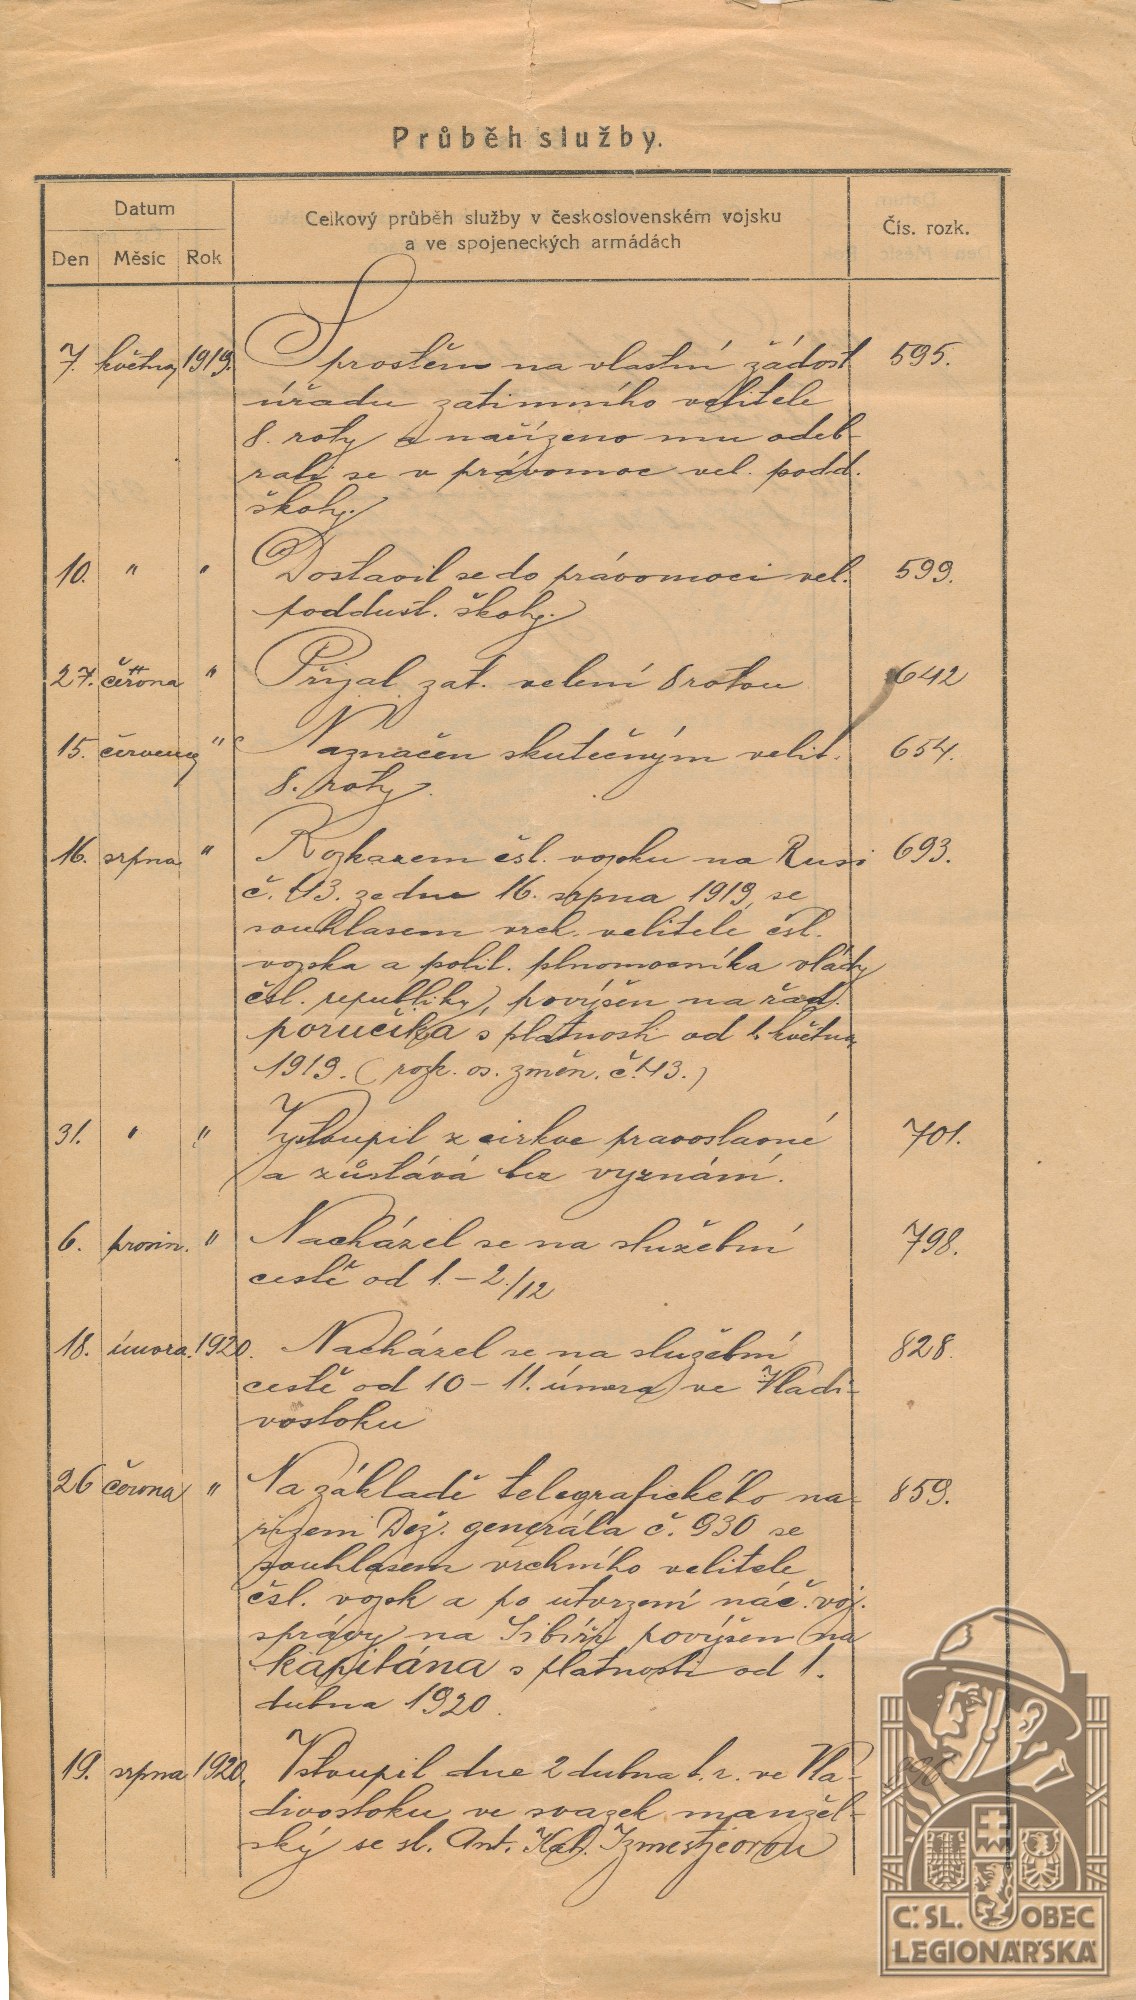 Průběh služby.
Datum
Celkový průběh služby v československém vojsku
a ve spojeneckých armádách
Čís. rozk.
Den Měsíc Rok
7. května 1919. Sprostěn na vlastní žádost 595.
úřadu zatimního velitele
8. roty a nařízeno mu odeb-
rati se v právomoc vel. podd.
školy.
10. " " Dostavil se do právomoci vel. 599.
poddust. školy.
27. června " Přijal zat. velení 8 rotou 642
15. července " Naznačen skutečným velit. 654.
8. roty.
16. srpna " Rozkazem čsl. vojsku na Rusi 693.
č. 43. ze dne 16. srpna 1919, se
souhlasem vrch. velitele čsl.
vojska a polit. plnomocníka vlády
čsl. republiky, povýšen na řad.
poručíka s platností od 1. května
1919. (rozk. os. změn. č. 43.)
31. " " Vystoupil z cirkve pravoslavné 701.
a zůstává bez vyznání.
6. prosin. " Nacházel se na služební 798.
cestě od 1. – 2./12
18. února. 1920. Nacházel se na služební 828.
cestě od 10 – 11. února ve Vladi-
vostoku
26 června " Na základě telegrafického na- 859.
řizeni Dež. generála č. 930 se
souhlasem vrchního velitele
čsl. vojsk a po utvrzení náč. voj.
správy na Sibiři povýšen na
kapitána s platností od 1.
dubna 1920.
19. srpna 1920. Vstoupil dne 2 dubna t. r. ve Vla-
divostoku ve svazek manžel-
ský se sl. Ant. Kat. Izmestjevovou
Č.SL. OBEC
LEGIONÁŘSKÁ